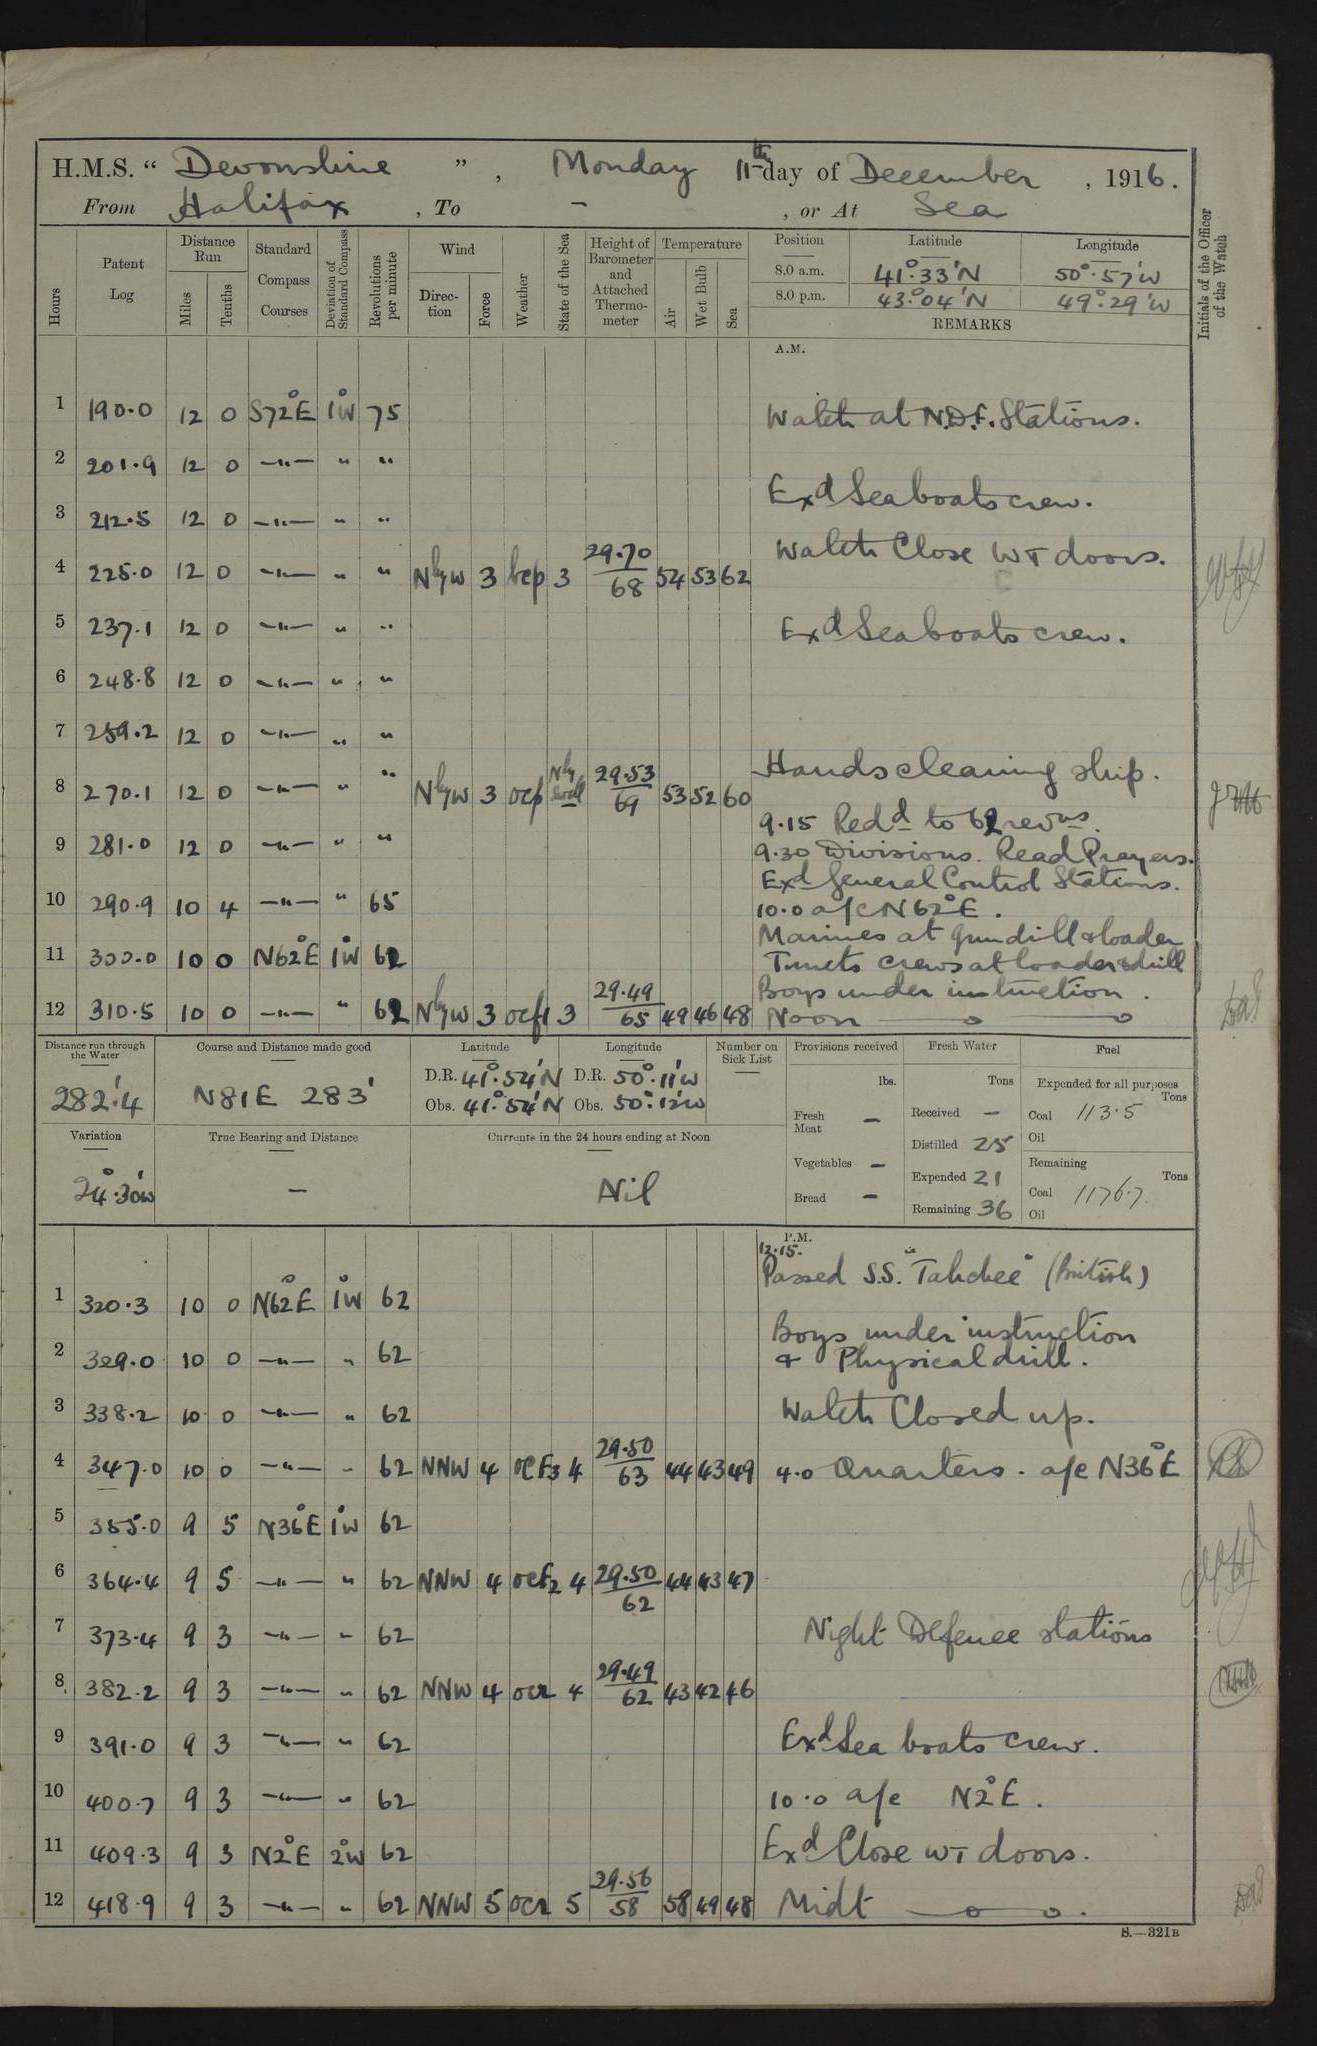 H.M.S. “ Devonshire ” , Monday 11th day of December , 1916.
From Halifax , To – , or At Sea
Hours
Patent Log
Distance Run
Miles
Tenths
Standard Compass Courses
Deviation of Standard Compass
Revolutions per minute
Wind
Direction
Force
Weather
State of the Sea
Height of Barometer and Attached Thermometer
Temperature
Air
Wet Bulb
Sea
Position Latitude Longitude
8.0 a.m. 41°.33'N 50°.57'W
8.0 p.m. 43°.04'N 49°.29'W
REMARKS
Initials of the Officer of the Watch
A.M.
1 190.0 12 0 S72°E 1°W 75 Watch at N.D.F. Stations.
2 201.9 12 0 –"– " "
Exd Sea boats crew.
3 212.5 12 0 –"– " "
Watch Close WT doors.
4 225.0 12 0 –"– " " NlyW 3 bcp 3 29.70 68 54 53 62
5 237.1 12 0 –"– " " Exd Sea boats crew.
6 248.8 12 0 –"– " "
7 259.2 12 0 –"– " "
Hands cleaning ship.
8 270.1 12 0 –"– " " NlyW 3 ocp Nly Swell 29.53 69 53 52 60
9.15 Redd to 62 revns.
9 281.0 12 0 –"– " " 9.30 Divisions. Read Prayers.
Exd General Control Stations.
10 290.9 10 4 –"– " 65 10.0 a/c N62°E.
Marines at gun drill & loader
11 300.0 10 0 N62°E 1°W 62 Turrets crews at loader & drill
Boys under instruction.
12 310.5 10 0 –"– " 62 NlyW 3 3 29.49 65 49 46 48 Noon
Distance run through the Water
282'.4
Course and Distance made good
N81E 283'
Latitude
D.R. 41°.54'N
Obs. 41°.54'N
Longitude
D.R. 50°.11'W
Obs. 50°.12'W
Number on Sick List
Provisions received
lbs.
Fresh Meat –
Vegetables –
Bread –
Fresh Water
Tons
Received –
Distilled 25
Expended 21
Remaining 36
Fuel
Expended for all purposes
Tons
Coal 113.5
Oil
Remaining
Tons
Coal 1176.7
Oil
Variation
24°.30'W
True Bearing and Distance
–
Currents in the 24 hours ending at Noon
Nil
P.M.
12.15.
Passed S.S. "Tahchee" (British)
1 320.3 10 0 N62°E 1°W 62
Boys under instruction
2 329.0 10 0 –"– " 62 & Physical drill.
3 338.2 10 0 –"– " 62 Watch Closed up.
4 347.0 10 0 –"– " 62 NNW 4 ocF3 4 29.50 63 44 43 49 4.0 Quarters. a/c N36°E
5 355.0 9 5 N36°E 1°W 62
6 364.4 9 5 –"– " 62 NNW 4 ocf2 4 29.50 62 44 43 47
7 373.4 9 3 –"– " 62 Night Defence stations
8 382.2 9 3 –"– " 62 NNW 4 ocr 4 29.49 62 43 42 46
9 391.0 9 3 –"– " 62 Exd Sea boats crew.
10 400.7 9 3 –"– " 62 10.0 a/c N2°E.
11 409.3 9 3 N2°E 2°W 62 Exd Close WT doors.
12 418.9 9 3 –"– " 62 NNW 5 ocr 5 29.56 58 58 49 48 Midt
S.—321B